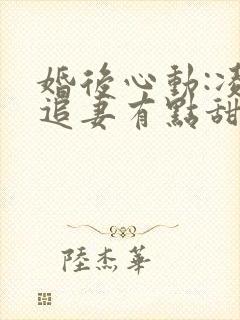 婚後心動:凌
追妻有點甜
陸杰華